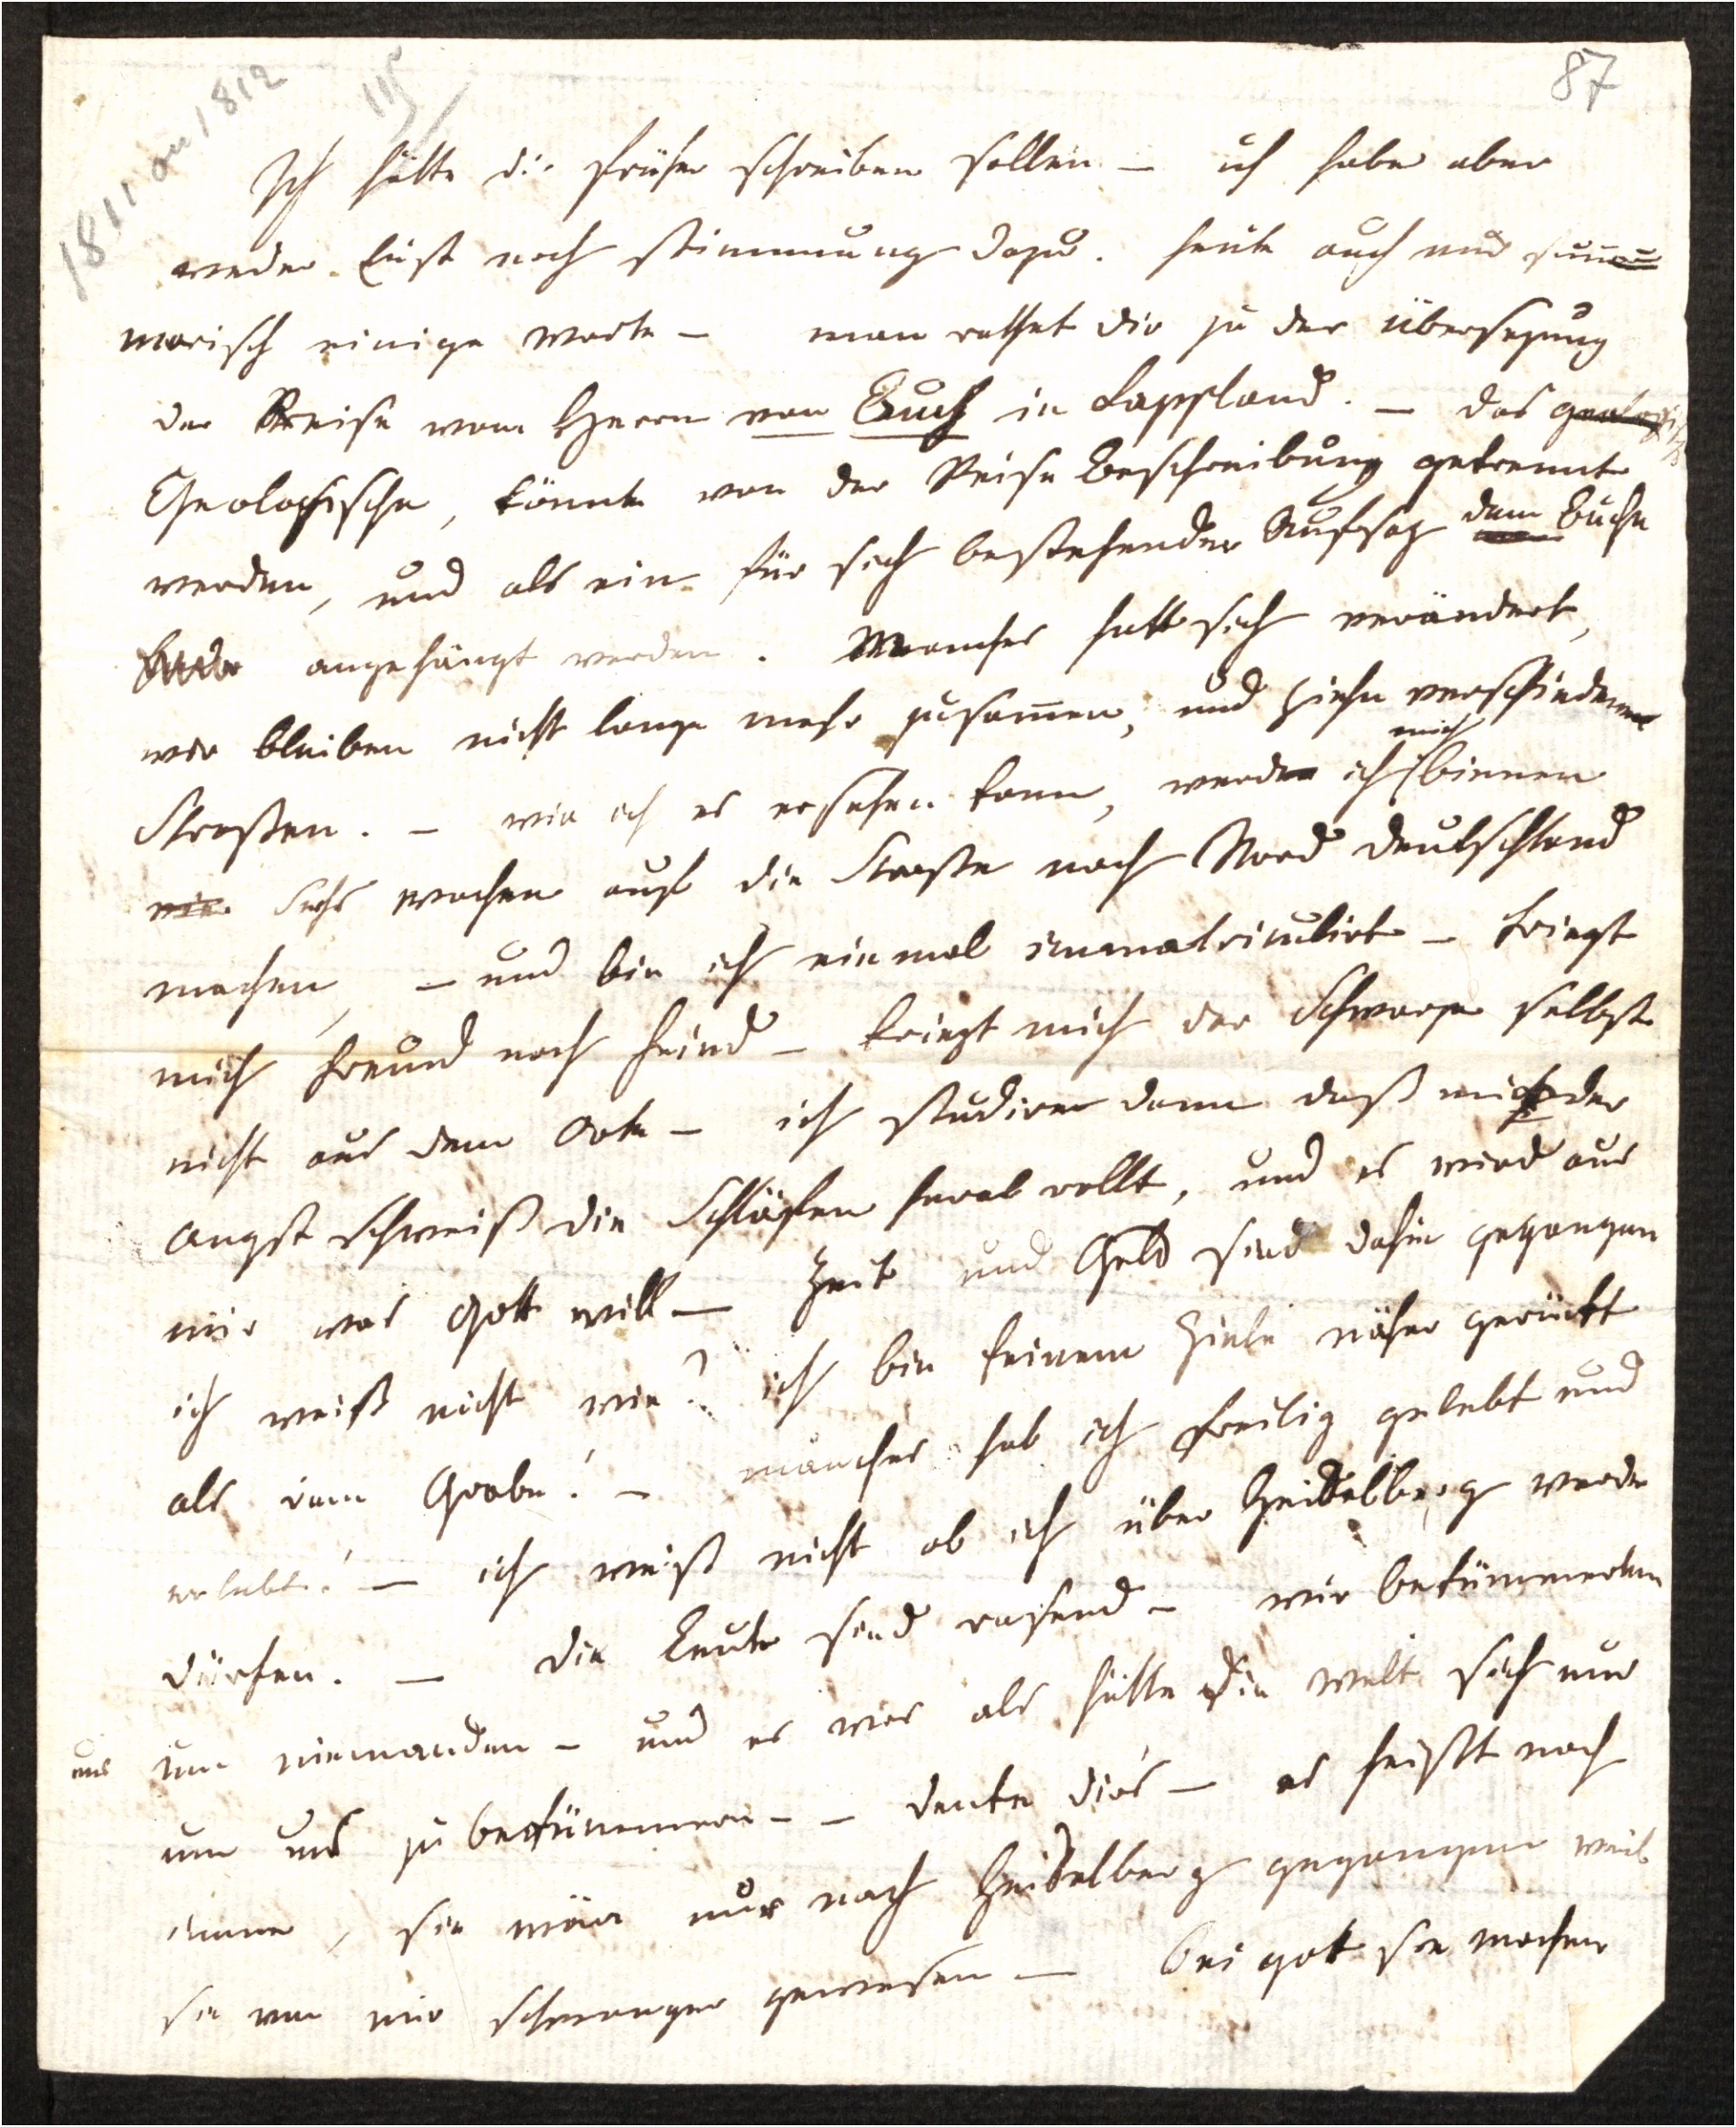 87
1811 ou 1812
115
Ich hätte dir früher schreiben sollen — ich habe aber
weder Lust noch stimmung dazu. heute auch nur sum
marisch einige worte — man rathet dir zu der übersezung
der Reise vom Herrn von Buch in Lappland. — das geologis
Geologische, könnte von der Reise Beschreibung getrennt
werden, und als ein für sich bestehender Aufsaz dem Buche
angehängt werden. Manches hatt sich verändert,
wir bleiben nicht lange mehr zusam̄en, und ziehn verschiedene
Straßen. — wie ich es ersehen kann, werde ich mich binnen
sechs wochen auf die Straße nach Nord deutschland
machen, — und bin ich einmal immatriculirt — kriegt
mich freund noch feind — kriegt mich der Schwarze selbst
nicht aus dem Orte — ich studire dann daß mir der
angst schweiß die Schläfen herab rollt, und es wird aus
mir was Gott will — Zeit und Geld sind dahin gegangen
ich weiß nicht wie? ich bin keinem Ziele näher gerückt
als dem Grabe! — manches hab ich freilig gelebt und
erlebt! — ich weiß nicht ob ich über Heidelberg werde
dürfen. — die Leute sind rasend — wir bekümmerten
uns um niemanden — und es war als hätte die welt sich nur
um uns zu bekümmern — — denke dir's — es heißt noch
immer, sie wäre nur nach Heidelberg gegangen weil
sie von mir schwanger gewesen — bei gott sie machen